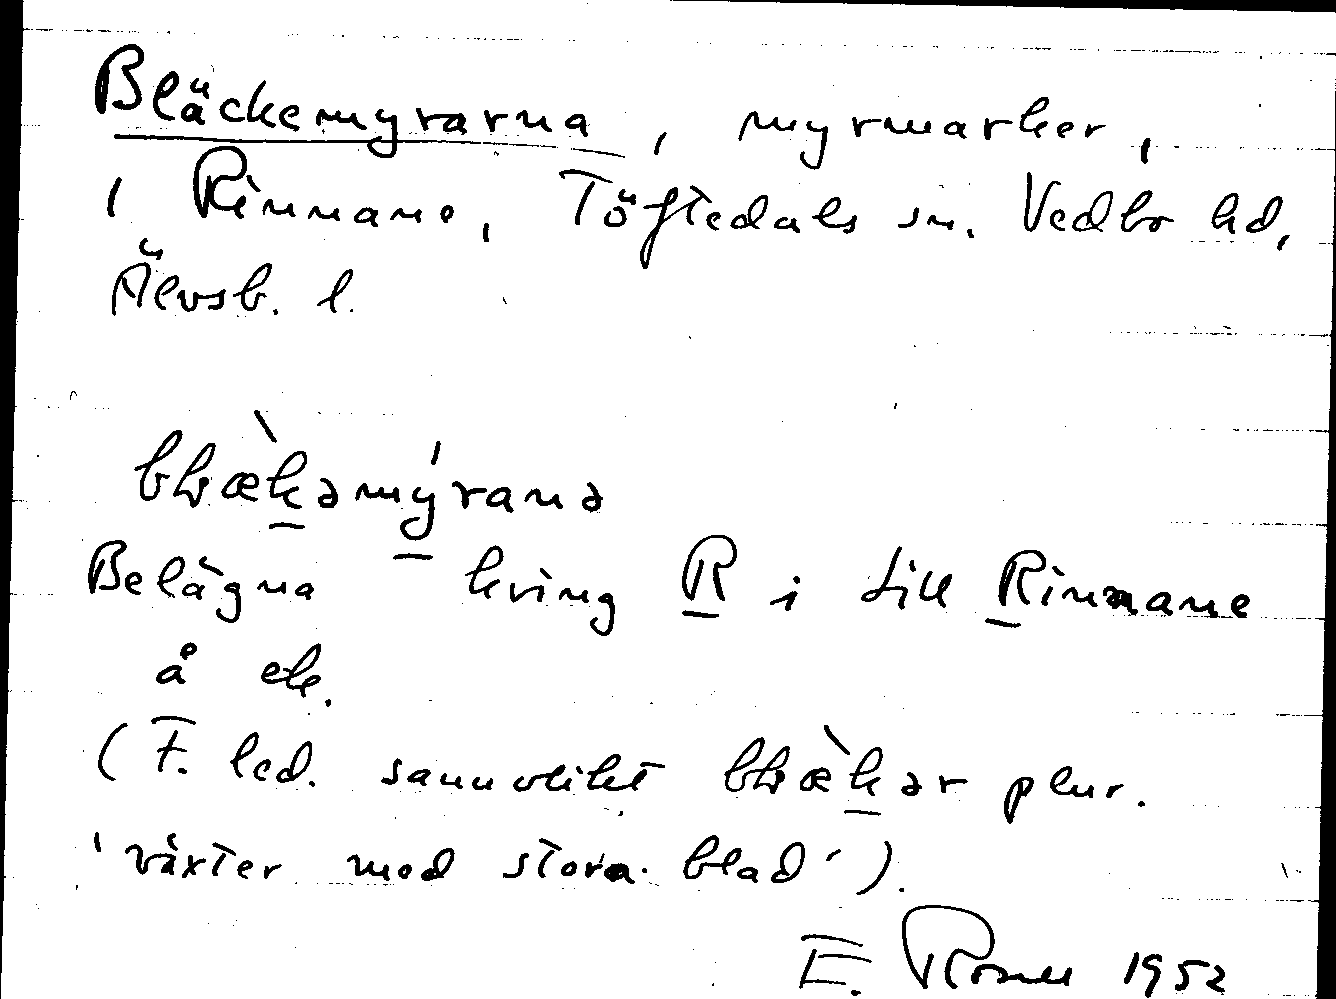 Bläckemyrarna, myrmarker,
i Rinnane, Töftedals sn. Vedbo hd,
Älvsb. l.
Belägna kring R i till Rinnane
å etc.
(F. led. sannolikt plur.
'växter med stora blad').
E. 1952